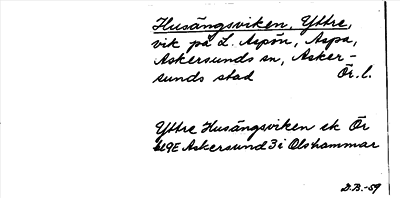 Husängsviken, Yttre,
vik på L. Aspön, Aspa,
Askersunds sn, Asker-
sunds stad Ör. l.
Yttre Husängsviken ek Ör
9E Askersund 3i Olshammar
D.B.-59